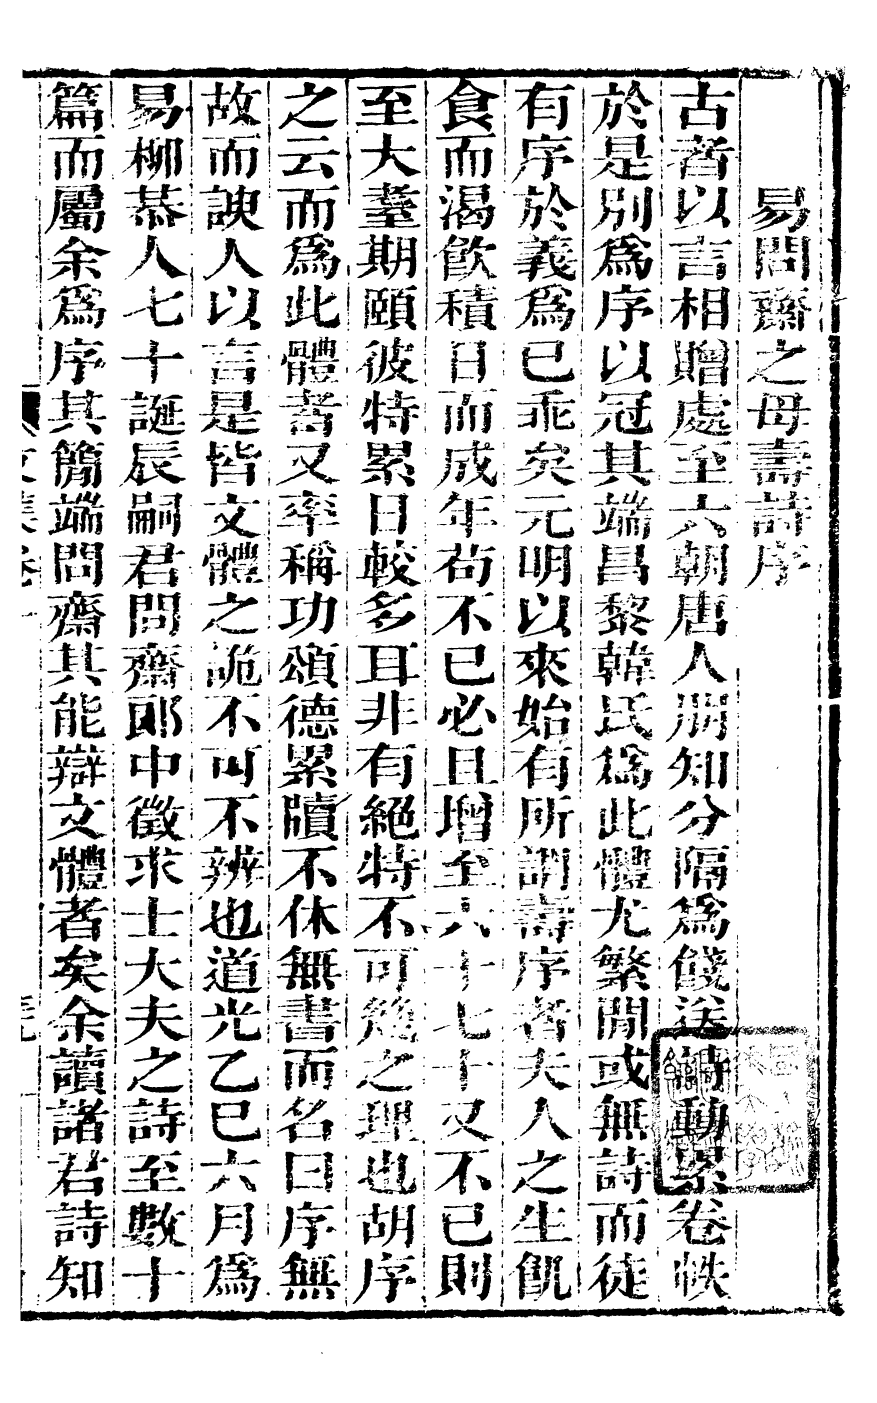 易問齋之母壽詩序
古者以言相贈處至六朝唐人朋知分隔爲餞送詩動累卷帙
於是別爲序以冠其端昌黎韓氏爲此體尤繁間或無詩而徒
有序於義爲已乖矣元明以來始有所謂壽序者夫人之生飢
食而渴飮積日而成年苟不已必且增至六十七十又不已則
至大耋期頤彼特累日較多耳非有絕特不可幾之理也胡序
之云而爲此體者又率稱功頌德累牘不休無書而名曰序無
故而諛人以言是皆文體之詭不可不辨也道光乙巳六月爲
易柳恭人七十誕辰嗣君問齋郞中徵求士大夫之詩至數十
篇而屬余爲序其簡端問齋其能辯文體者矣余讀諸君詩知